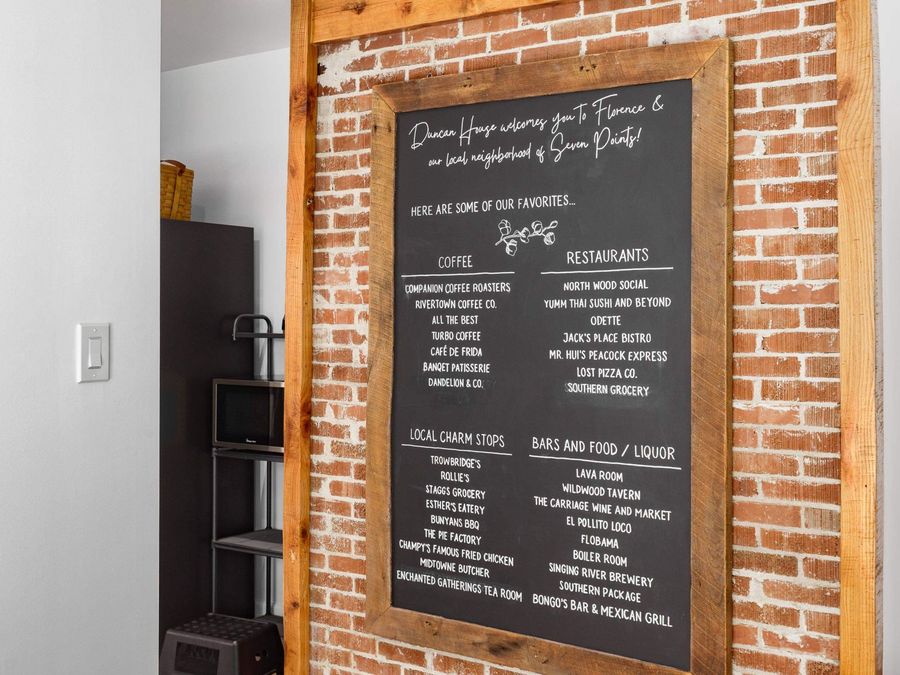 Duncan House welcomes you to Florence &
our local neighborhood of Seven Points!
HERE ARE SOME OF OUR FAVORITES...
COFFEE
COMPANION COFFEE ROASTERS
RIVERTOWN COFFEE CO.
ALL THE BEST
TURBO COFFEE
CAFÉ DE FRIDA
BANQET PATISSERIE
DANDELION & CO.
RESTAURANTS
NORTH WOOD SOCIAL
YUMM THAI SUSHI AND BEYOND
ODETTE
JACK'S PLACE BISTRO
MR. HUI'S PEACOCK EXPRESS
LOST PIZZA CO.
SOUTHERN GROCERY
LOCAL CHARM STOPS
TROWBRIDGE'S
ROLLIE'S
STAGGS GROCERY
ESTHER'S EATERY
BUNYANS BBQ
THE PIE FACTORY
CHAMPY'S FAMOUS FRIED CHICKEN
MIDTOWNE BUTCHER
ENCHANTED GATHERINGS TEA ROOM
BARS AND FOOD / LIQUOR
LAVA ROOM
WILDWOOD TAVERN
THE CARRIAGE WINE AND MARKET
EL POLLITO LOCO
FLOBAMA
BOILER ROOM
SINGING RIVER BREWERY
SOUTHERN PACKAGE
BONGO'S BAR & MEXICAN GRILL